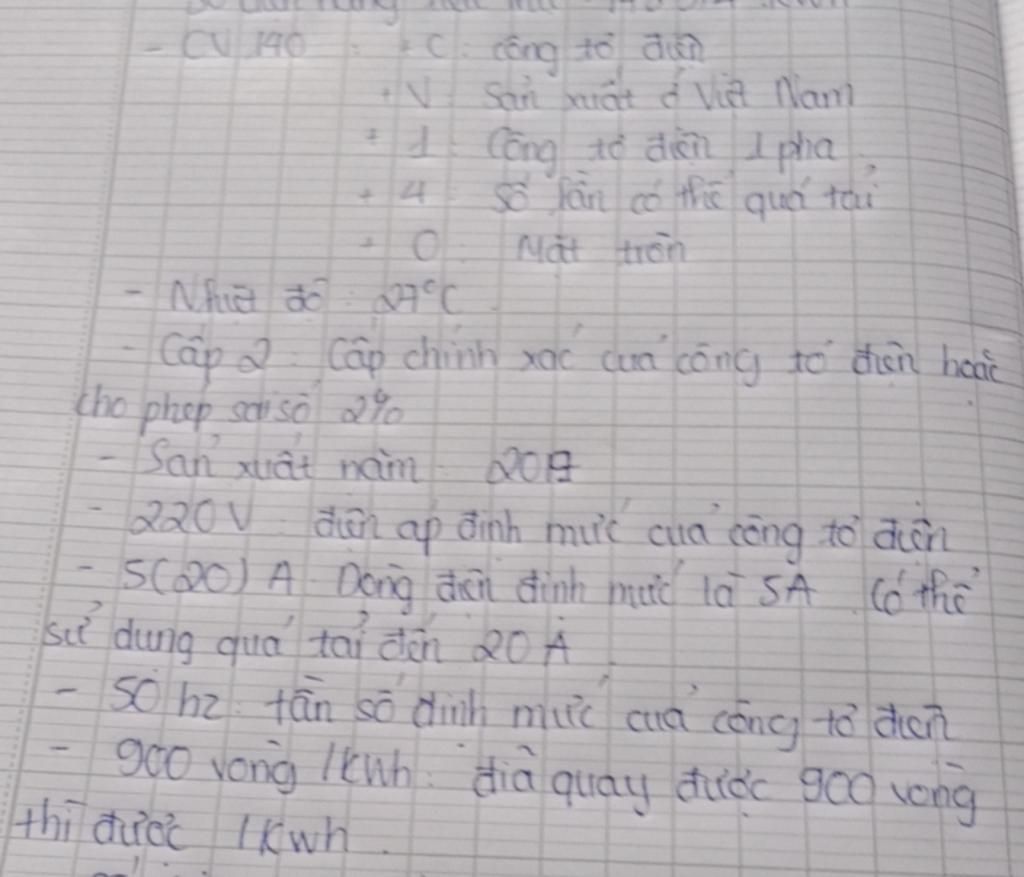 - CV 140 : + C : công tơ điện
+ V : Sản xuất ở Việt Nam
+ 1 : Công tơ điện 1 pha
+ 4 : Số lần có thể quá tải
+ 0 : Mặt tròn
- Nhiệt độ : 27°C
- Cấp 2 : Cấp chính xác của công tơ điện hoặc
cho phép sai số 2%
- Sản xuất năm
- 220V : điện áp định mức của công tơ điện
- 5(20) A : Dòng điện định mức là 5A. Có thể
sử dụng quá tải đến 20 A
- 50 hz : tần số định mức của công tơ điện
- 900 vòng /kwh : đĩa quay được 900 vòng
thì được 1Kwh.